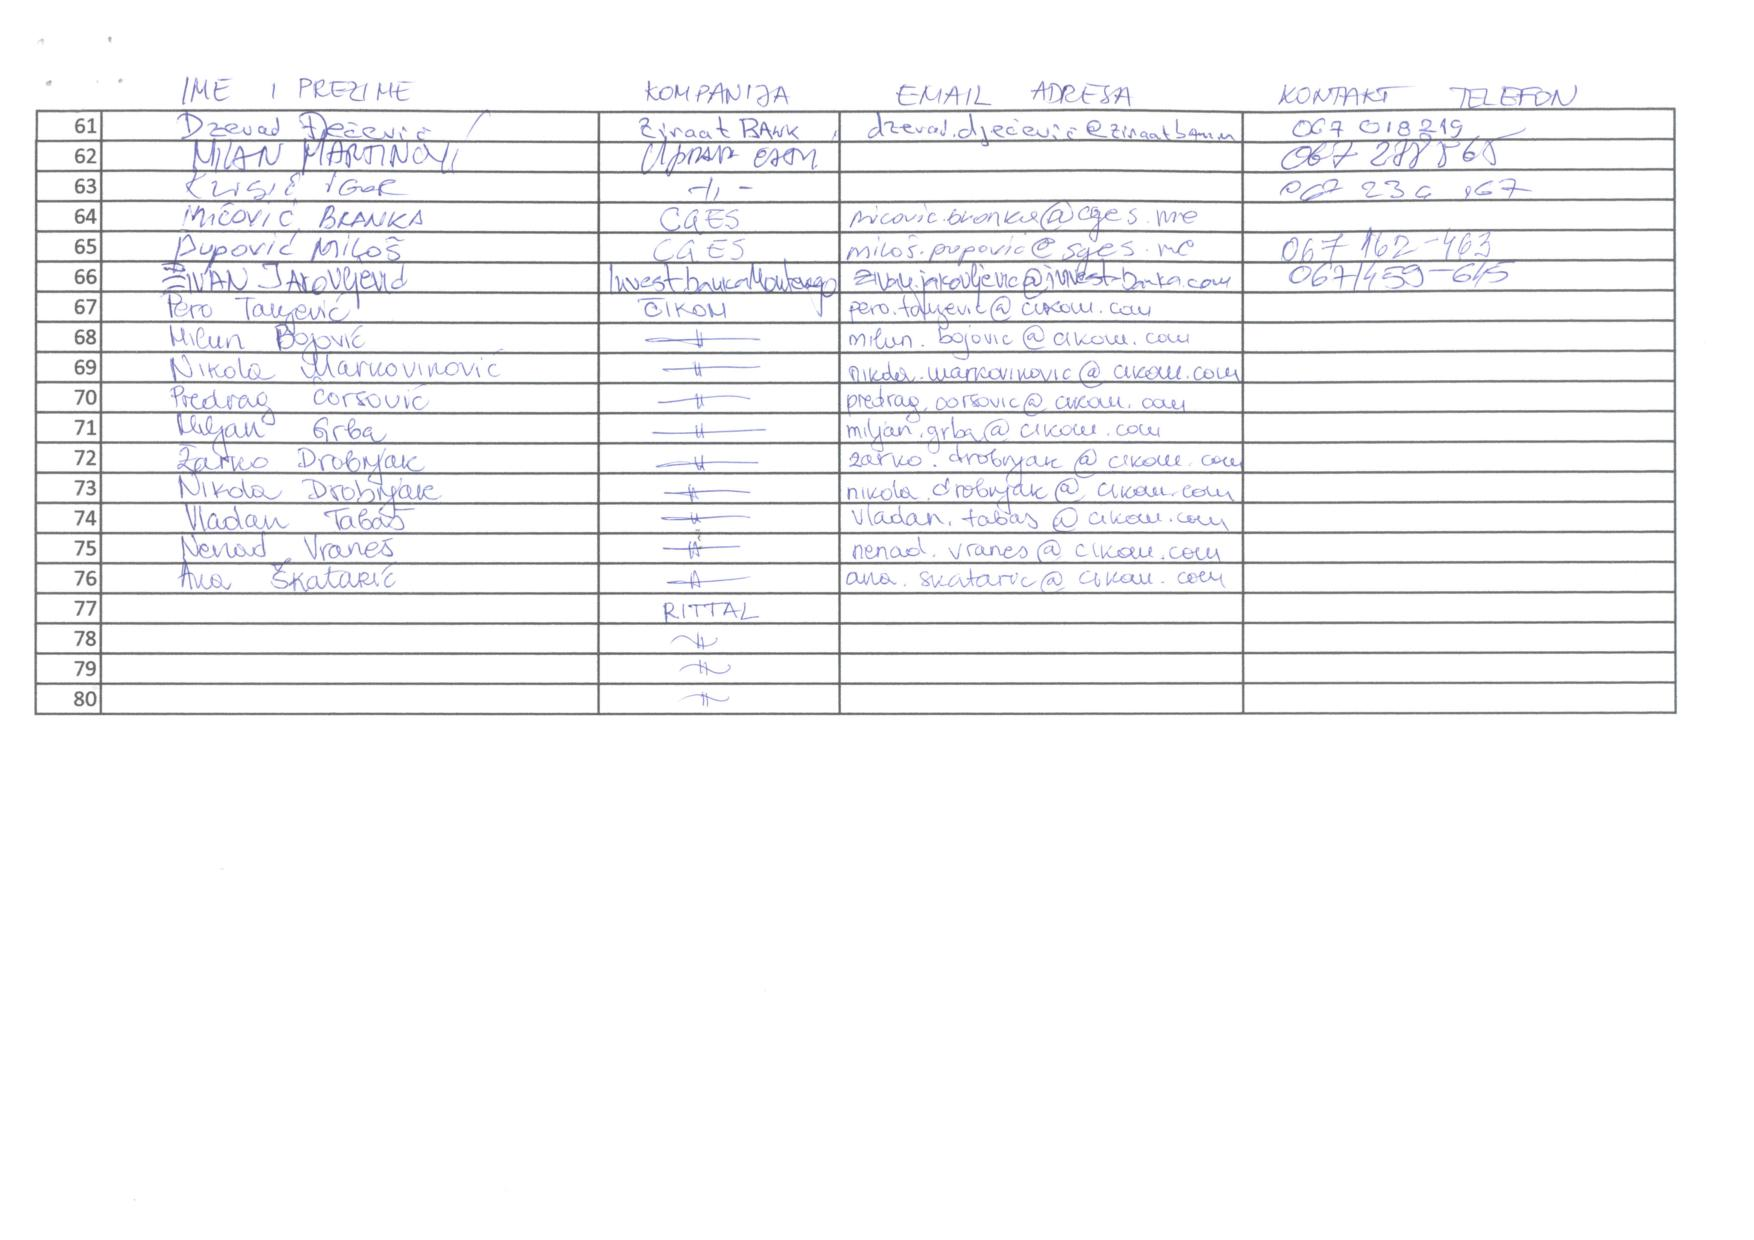 IME I PREZIME KOMPANIJA EMAIL ADRESA KONTAKT TELEFON
61 Dzevad Đečević Ziraat BANK dzevad.djecevic@ziraatbank
62 MILAN 067
63 IGOR -//- 067
64 MIČOVIĆ BRANKA CGES micovic.branka@cges.me
65 Pupović Miloš CGES miloš.pupovic@sges.me 067 162-463
66 ŽIVAN Jakovljević Invest banka Montenegro zivan.jakovljevic@invest-banka.com 067/459-615
67 Pero Tanjević ČIKOM pero.tanjevic@cikom.com
68 Milun Bojović -//- milun.bojovic@cikom.com
69 Nikola Markovinović -//- nikola.markovinovic@cikom.com
70 Predrag Ćorsović -//- predrag.corsovic@cikom.com
71 Miljan Grba -//- miljan.grba@cikom.com
72 Žarko Drobnjak -//- zarko.drobnjak@cikom.com
73 Nikola Drobnjak -//- nikola.drobnjak@cikom.com
74 Vladan Tabaš -//- vladan.tabas@cikom.com
75 Nenad Vraneš -//- nenad.vranes@cikom.com
76 Ana Škatarić -//- ana.skataric@cikom.com
77 RITTAL
78 -//-
79 -//-
80 -//-